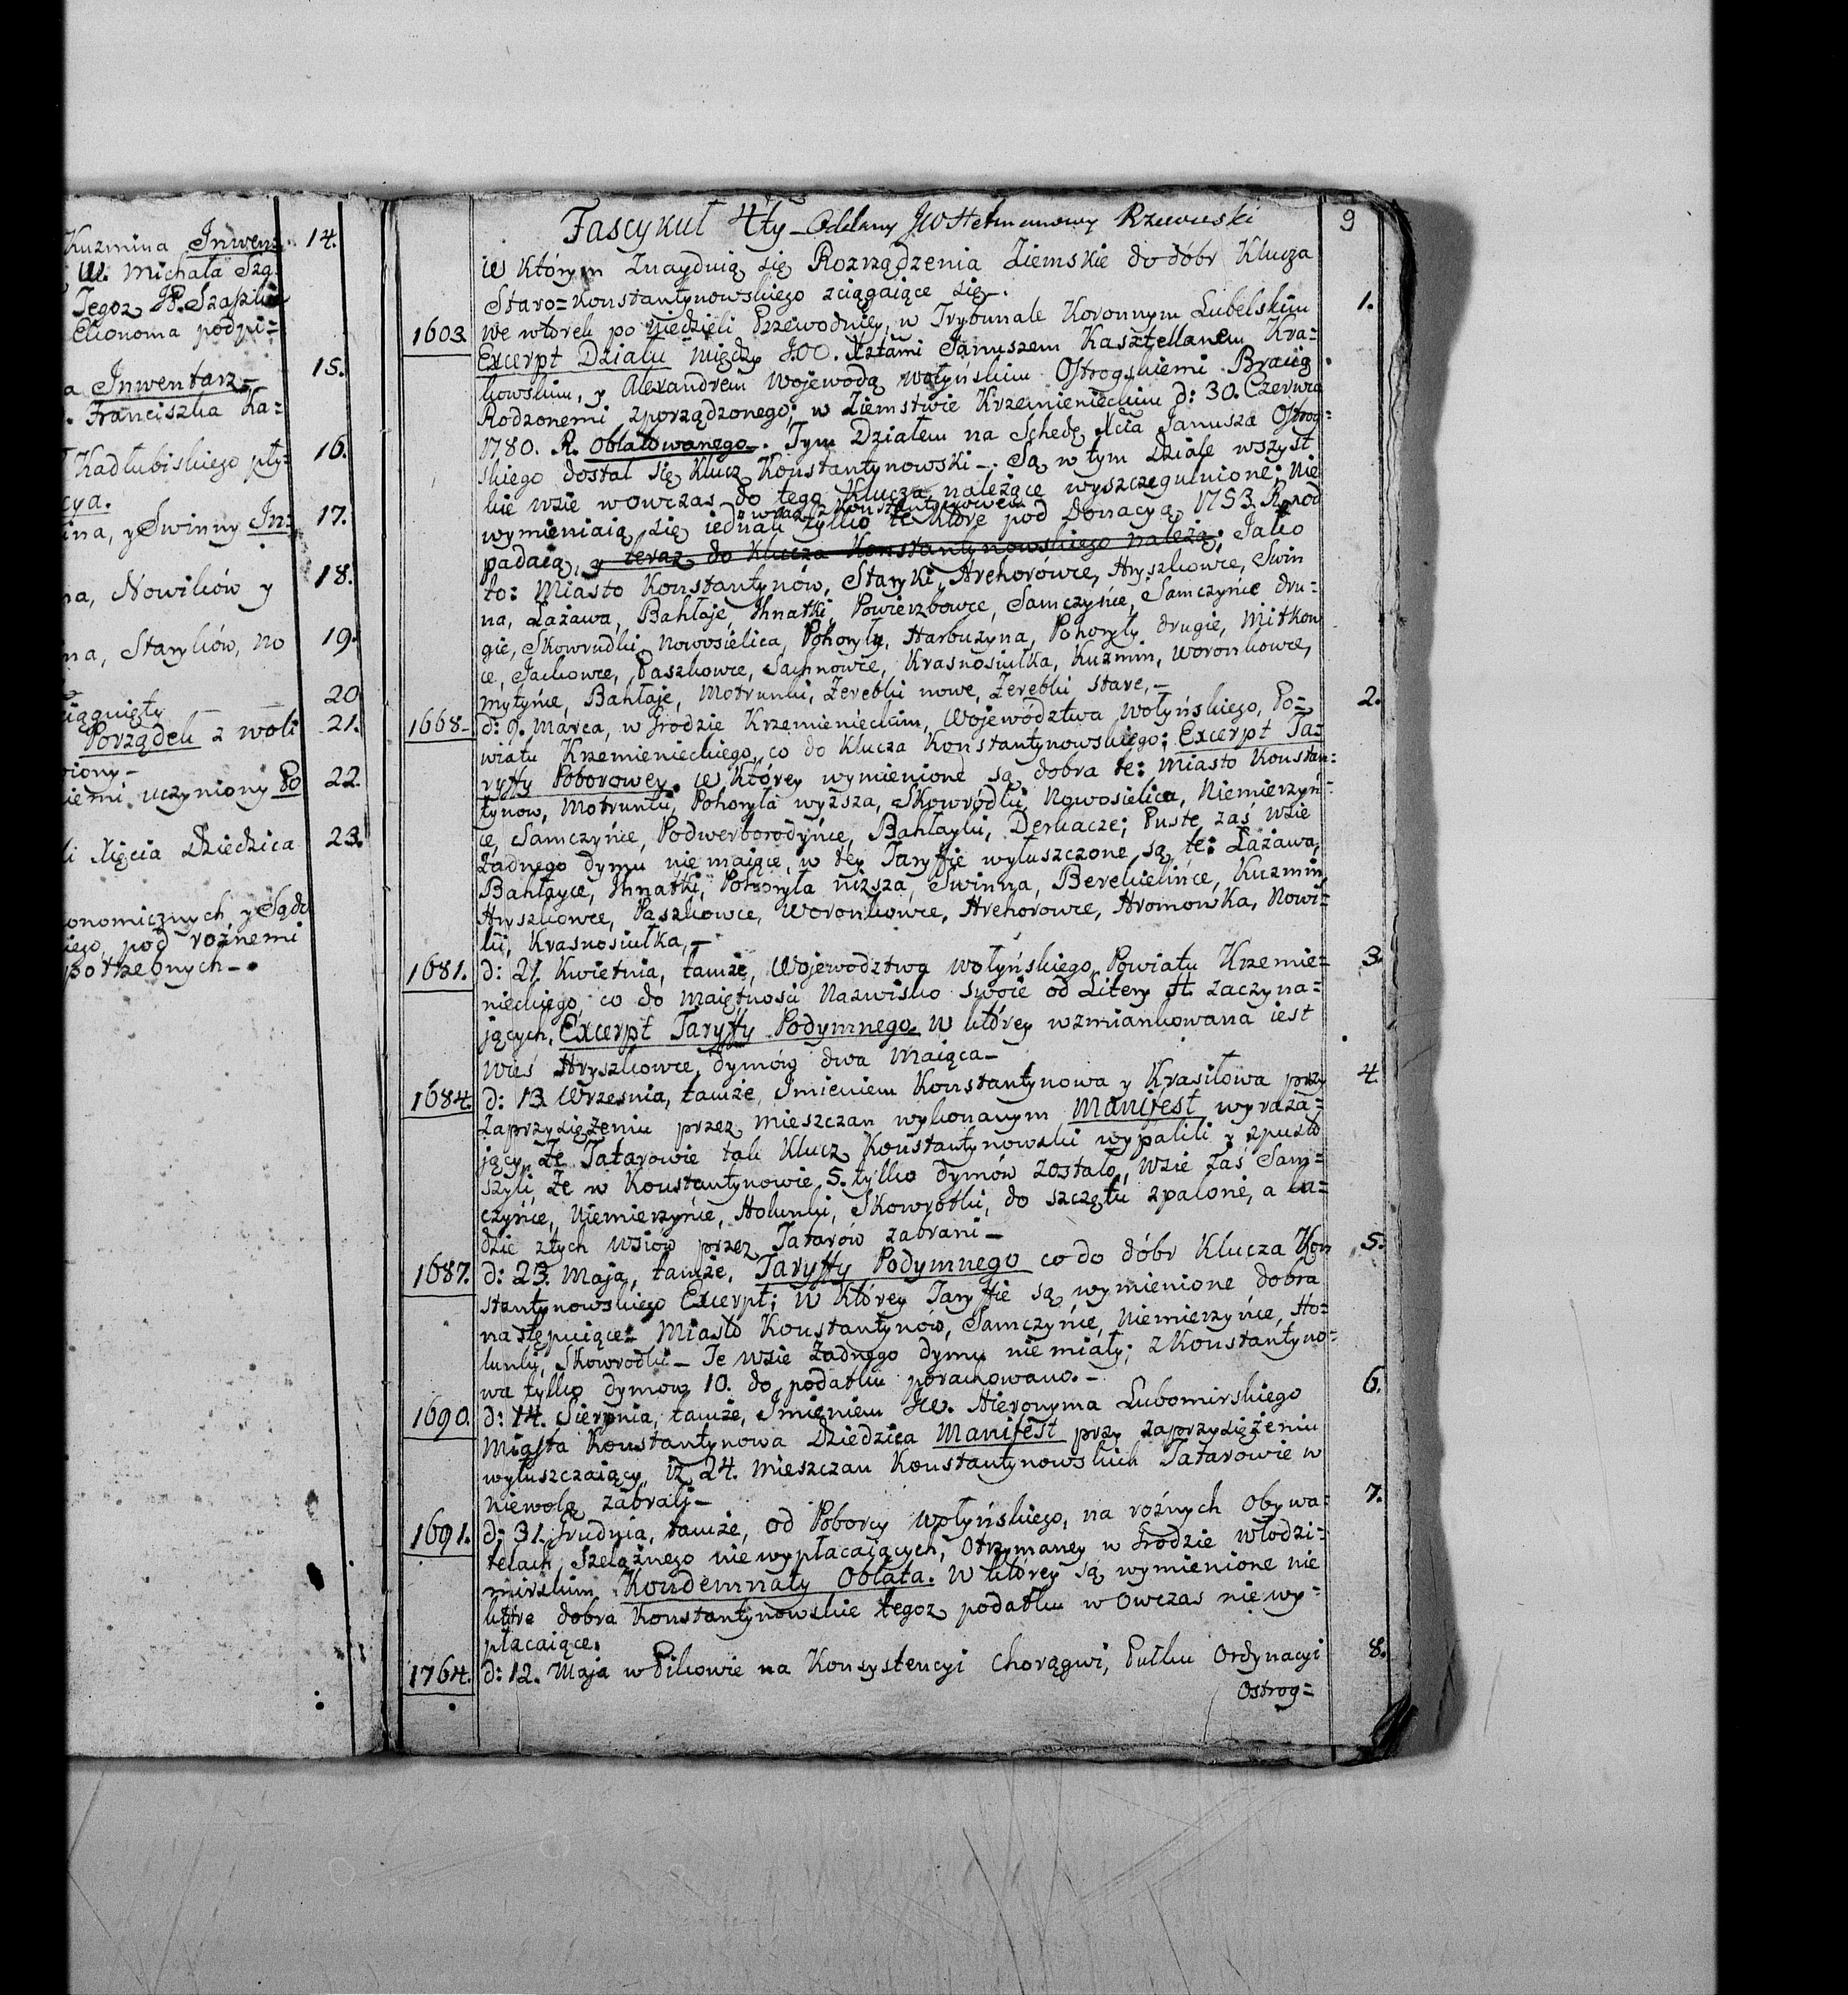 Kuzmina Inwen= 14.
W. Michała Sza=
Tegoż JP. Szaszkie
Ekonoma podpi=
a Inwentarz 15.
. Franciszka Ka=
Kadłubiskiego pły= 16.
cya.
ina, y Swinny In= 17.
na, Nowików y 18.
na, Starylów, no 19.
iągnięty 20
Porządek z woli 21.
iony-
iemi uczyniony Po 22.
li Xięcia Dziedzica 23.
onomicznych, y Sądo
iego, pod roźnemi
potrzebnych-.
9
Fascykuł 4ty - Oddany JW Hetmanowy Rzewuski
W którym Znayduią się Rozrządzenia Ziemskie do dóbr Klucza
Staro=Konstantynowskiego zciągaiące się-.
1603. We wtorek po Niedzieli Przewodniey, w Trybunale Koronnym Lubelskim 1.
Excerpt Działu między JOO. Xztami Januszem Kasztellanem Kra=
kowskim, y Alexandrem Wojewodą wołyńskim Ostrogskiemi Bracią
Rodzonemi zporządzonego; w Ziemstwie Krzemienieckim d: 30. Czerwca
1780. R. oblatowanego-. Tym Działem na Schedę Xcia Janusza Ostrog=
skiego dostał się Klucz Konstantynowski-. Są w tym Dziale wszyst
kie wsie wowczas do tego Klucza należące wyszczegulnione; nie
wraz z Konstantynowem
wymieniaią się iednak tylko te które pod Donacyą 1753. R. pod
padaią, y teraz do Klucza Konstantynowskiego należą; Jako
to: Miasto Konstantynów, Staryki, Hrehorówce, Hryszkowce, Swin
na, Łażawa, Bahłaje, Ihnatki, Powierzbowce, Samczyńce, Samczyńce dru=
gie, Skowrudki, Nowosielica, Pohoryły, Harbuzyna, Pohoryły drugie, Mitkow
ce, Jackowce, Paszkowce, Sachnowce, Krasnosiułka, Kuzmin, Woronkowce,
Mytyńce, Bahłaje, Motrunki, Zerebki nowe, Zerebki stare,-
1668. d: 9. Marca, w Grodzie Krzemienieckim, Województwa Wołyńskiego, Po= 2.
wiatu Krzemienieckiego, co do Klucza Konstantynowskiego; Excerpt Ta=
ryffy Poborowey. w którey wymienione są dobra te: Miasto Konstan=
tynow, Motrunki, Pohoryła wyższa, Skowródki, Nowosielica, Niemierzyń=
ce, Samczyńce, Podwerborodyńce, Bahłayki, Derkacze; Puste zaś wsie
żadnego dymu nie maiące, w tey Taryffie wyłuszczone są te: Łażawa,
Bahłayce, Ihnatki, Pohoryła niższa, Swinna, Berekielińce, Kuzmin,
Hryszkowce, Paszkowce, Woronkowce, Hrehorowce, Hromowka, Nowi=
ki, Krasnosiułka,-
1681. d: 21. Kwietnia, tamże, Województwa Wołyńskiego, Powiatu Krzemie= 3.
nieckiego, co do maiętnosci Nazwisko swoie od Litery H. zaczyna=
jących, Excerpt Taryffy Podymnego. w którey wzmiankowana iest
wieś Hryszkowce, dymów dwa maiąca-
1684. d: 13 Wrzesnia, tamże, Imieniem Konstantynowa y Krasiłowa przy 4.
zaprzysiężeniu przez mieszczan wykonanym Manifest wyraża=
jący, że Tatarowie tak Klucz Konstantynowski wypalili y spusto
szyli, że w Konstantynowie 5. tylko dymów zostało, wsie zaś Sam=
czyńce, Niemierzyńce, Holunki, Skowrodki, do szczętu spalone, a lu=
dzie z tych wsiów przez Tatarów zabrani-
1687. d: 23. Maja, tamże, Taryffy Podymnego co do dóbr Klucza Kon 5.
stantynowskiego Excerpt; w którey Taryffie są wymienione dobra
następuiące: Miasto Konstantynów, Samczyńce, Niemierzyńce, Ho=
lunki, Skowrodki- Te wsie żadnego dymu nie miały; z Konstantyno=
wa tylko dymow 10. do podatku porachowano.-
1690. d: 14. Sierpnia, tamże, Imieniem JW. Hieronyma Lubomirskiego 6.
Miasta Konstantynowa Dziedzica Manifest przy zaprzysiężeniu
wyłuszczaiący, iż 24. Mieszczan Konstantynowskich Tatarowie w
niewolą zabrali-
1691. d: 31. Grudnia, tamże, od Poborcy Wołyńskiego, na roźnych Obywa= 7.
telach Szelężnego nie wypłacaiących, Otrzymaney w Grodzie Włodzi=
mirskim Kondemnaty Oblata. w którey są wymienione nie
które dobra Konstantynowskie tegoż podatku w owczas nie wy=
płacaiące.
1764. d: 12. Maja w Pikowie na Konsystencyi Chorągwi, Pułku Ordynacyi 8.
Ostrog=